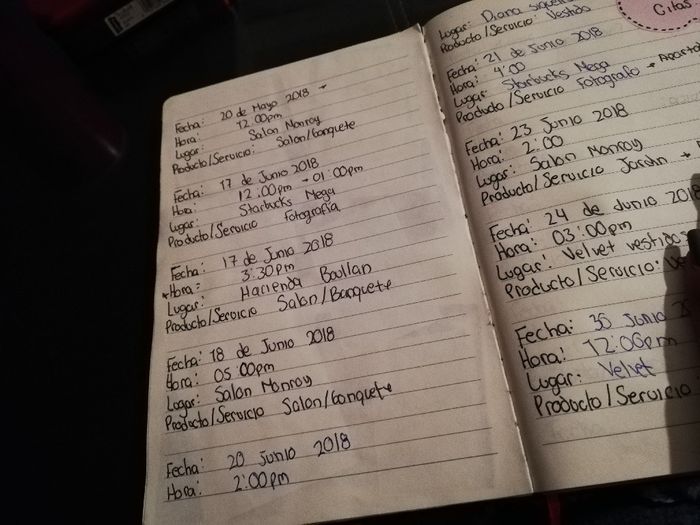 Fecha: 20 de Mayo 2018
Hora: 12:00pm
Lugar: Salon Monroy
Producto/Servicio: Salon/banquete
Fecha: 17 de Junio 2018
Hora: 12:00pm - 01:00pm
Lugar: Starbucks Mega
Producto/Servicio Fotografia
Fecha: 17 de Junio 2018
Hora: 3:30pm
Lugar: Hacienda
Producto/Servicio Salon/Banquete
Fecha: 18 de Junio 2018
Hora: 05:00pm
Lugar: Salon Monroy
Producto/Servicio Salon/banquete
Fecha: 20 Junio 2018
Hora: 2:00pm
Citas
Lugar: Diana
Producto/Servicio: Vestido
Fecha: 21 de Junio 2018
Hora: 4:00
Lugar: Starbucks Mega
Producto/Servicio Fotografo
Fecha: 23 Junio 2018
Hora: 2:00
Lugar: Salon Monroy
Producto/Servicio Jardin
Fecha: 24 de Junio 2018
Hora: 03:00pm
Lugar: Velvet vestidos
Producto/Servicio:
Fecha: Junio
Hora: 12:00pm
Lugar: Velvet
Producto/Servicio